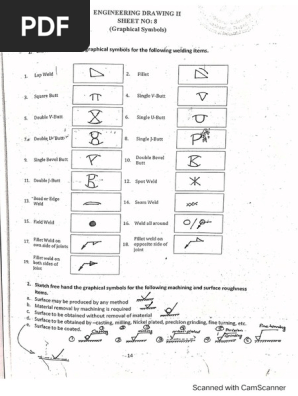 PDF
ENGINEERING DRAWING II
SHEET NO: 8
(Graphical Symbols)
graphical symbols for the following welding items.
1. Lap Weld
2. Fillet
3. Square Butt
4. Single V-Butt
5. Double V-Butt
6. Single U-Butt
7. Double U-Butt
8. Single J-Butt
9. Single Bevel Butt
10. Double Bevel Butt
11. Double J-Butt
12. Spot Weld
13. Bead or Edge Weld
14. Seam Weld
15. Field Weld
16. Weld all around
17. Fillet Weld on own side of joint
18. Fillet weld on opposite side of joint
19. Fillet weld on both sides of joint
2. Sketch free hand the graphical symbols for the following machining and surface roughness items.
a. Surface may be produced by any method
b. Material removal by machining is required
c. Surface to be obtained without removal of material
d. Surface to be obtained by –casting, milling, Nickel plated, precision grinding, fine turning, etc.
e. Surface to be coated.
14
Scanned with CamScanner